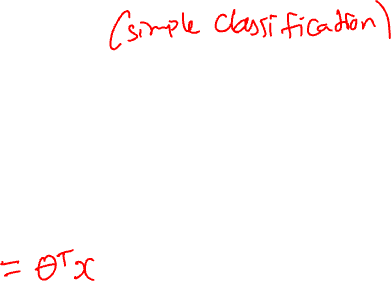 (simple classification)
= θᵀx